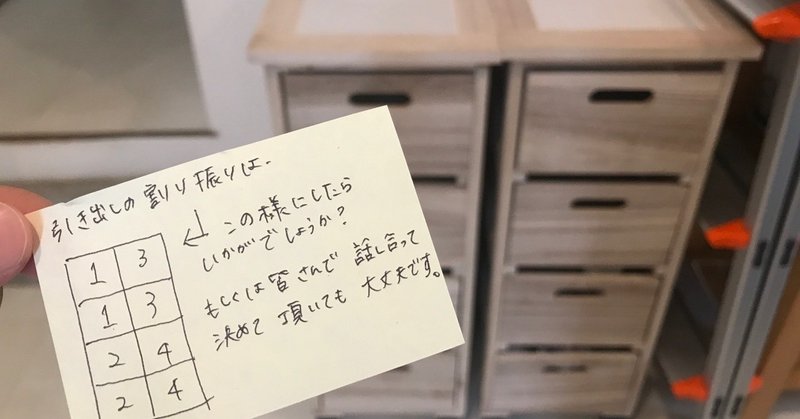 引き出しの割り振りは、
この様にしたら
いかがでしょうか?
もしくは皆さんで話し合って
決めて頂いても大丈夫です。
1 3
1 3
2 4
2 4